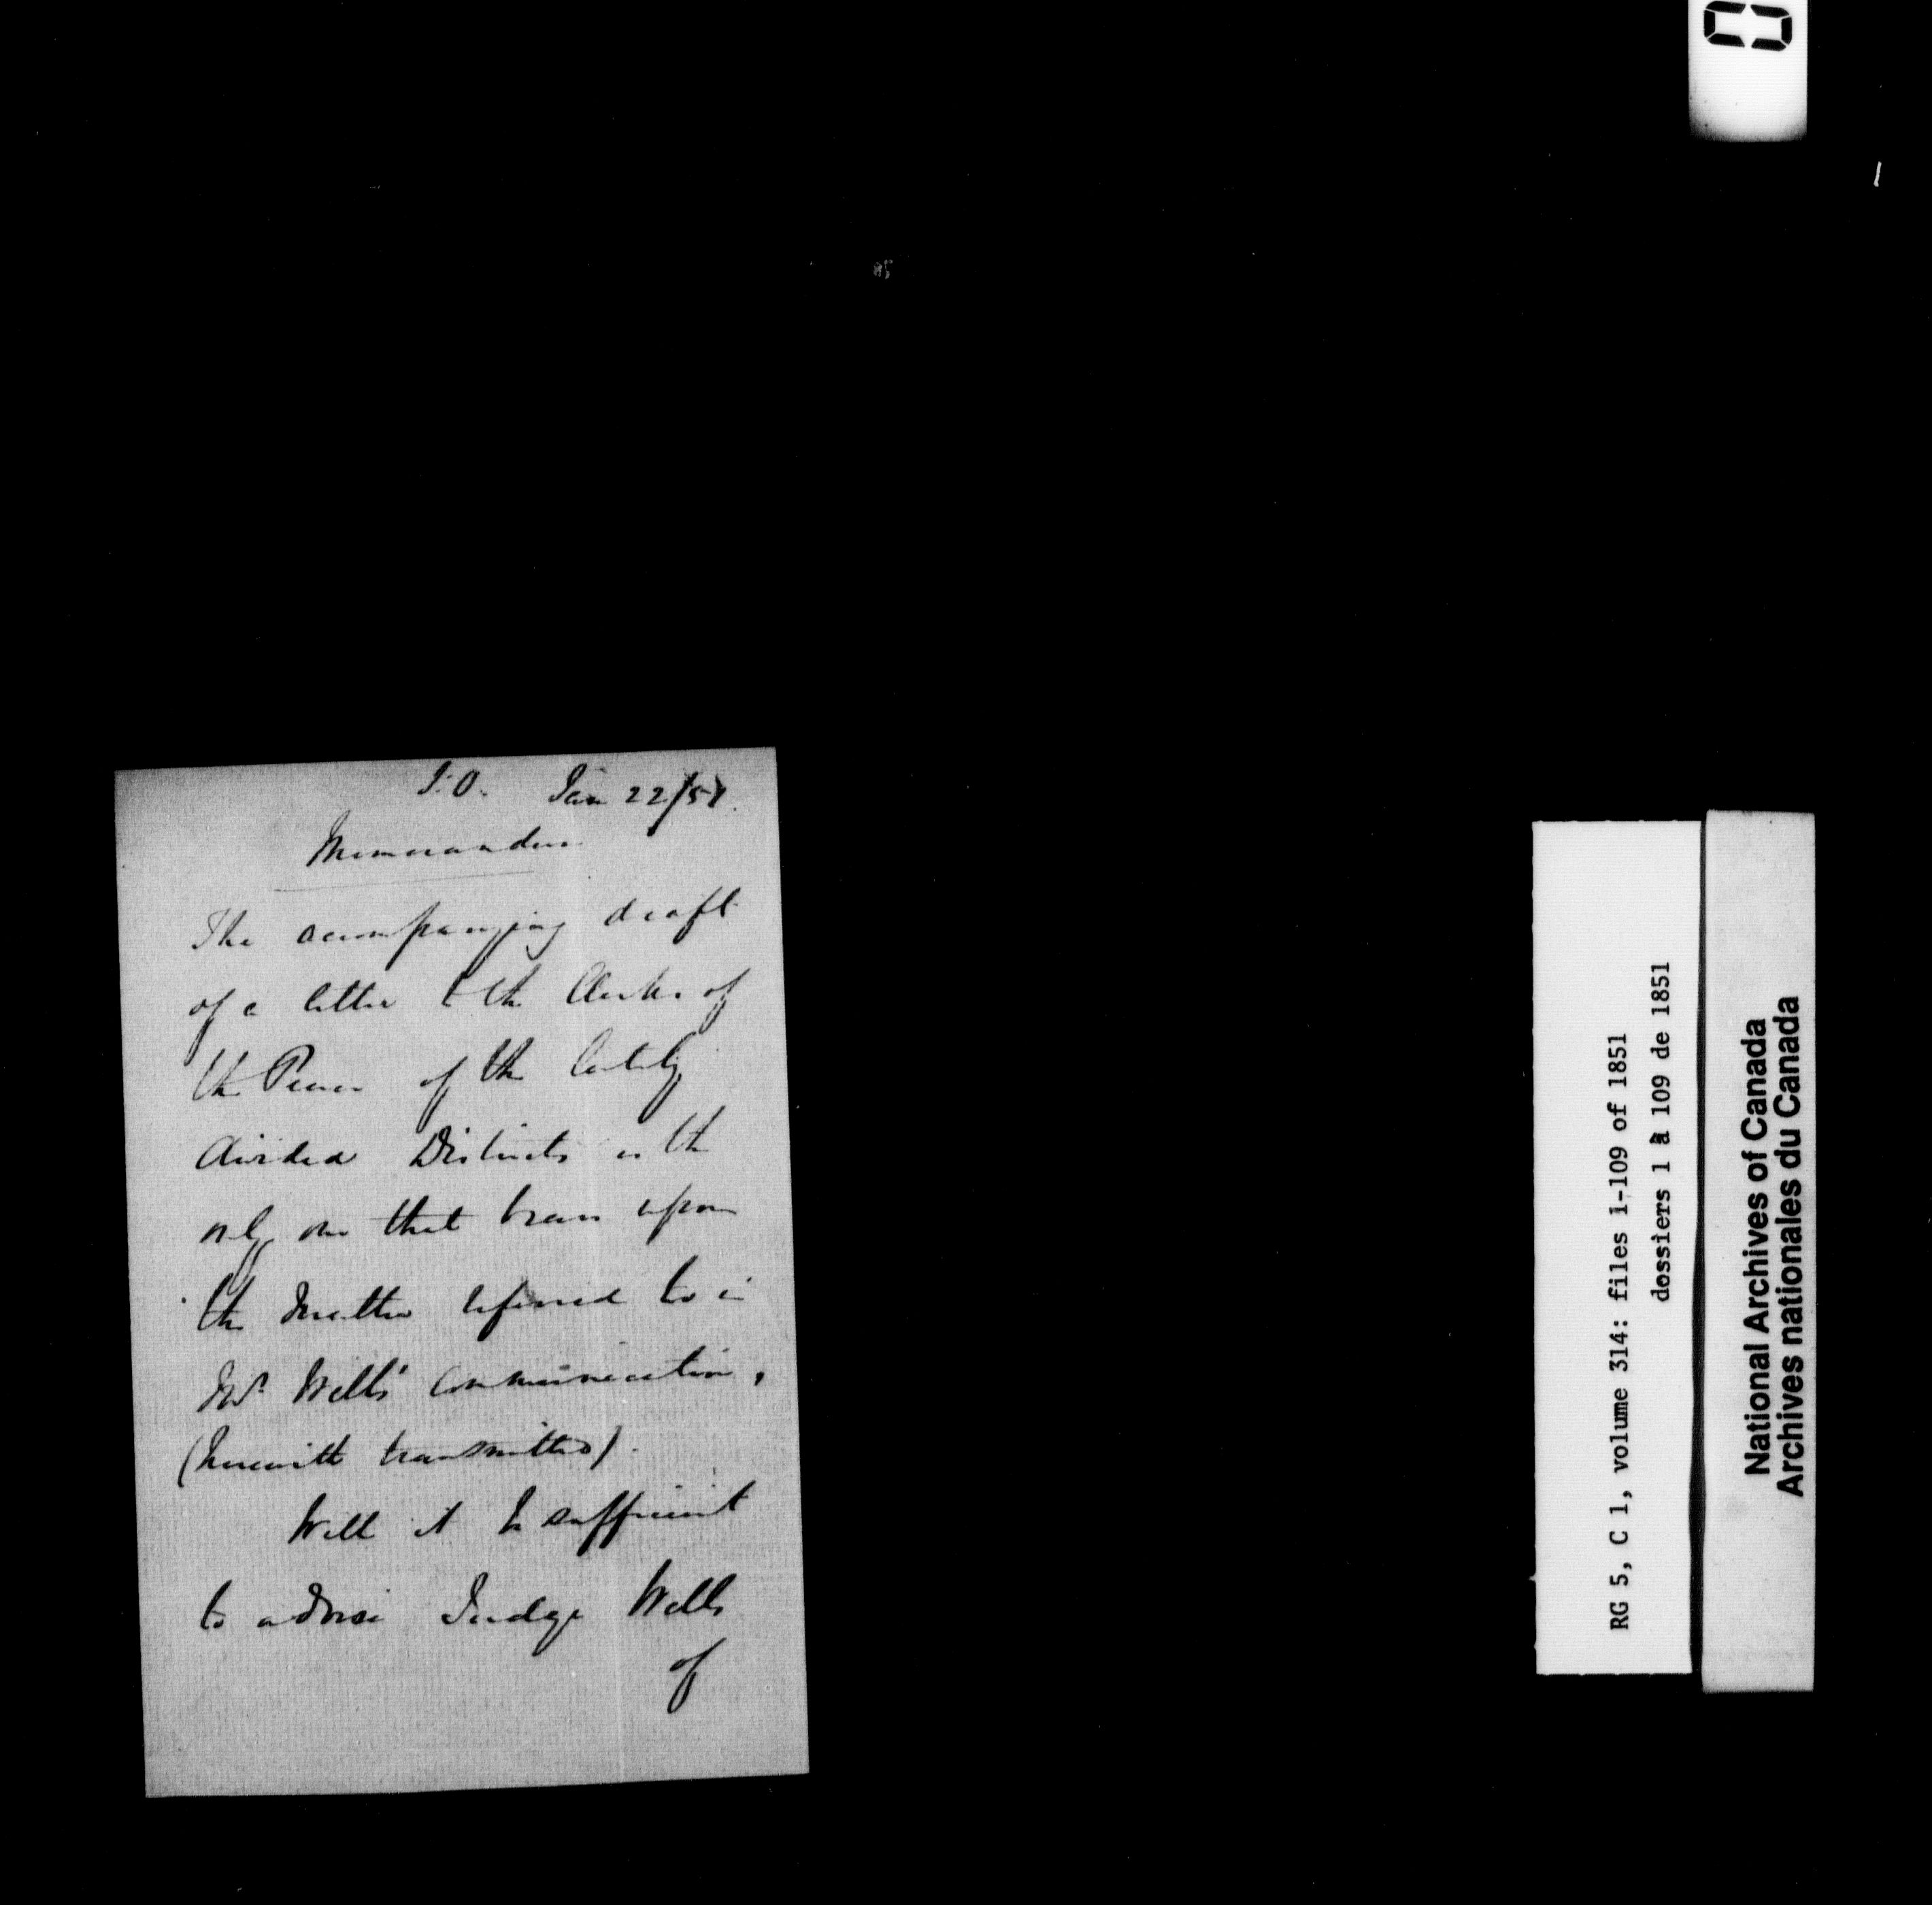 I.O. Jan 22/51.
Memorandum
The accompanying draft
of a letter to the Clerks of
the Peace of the lately
divided Districts is the
only one that bears upon
the matter referred to in
Mr Wells' communication,
(herewith transmitted).
Will it be sufficient
to advise Judge Wells
of
RG 5, C 1, volume 314: files 1-109 of 1851
dossiers 1 à 109 de 1851
National Archives of Canada
Archives nationales du Canada